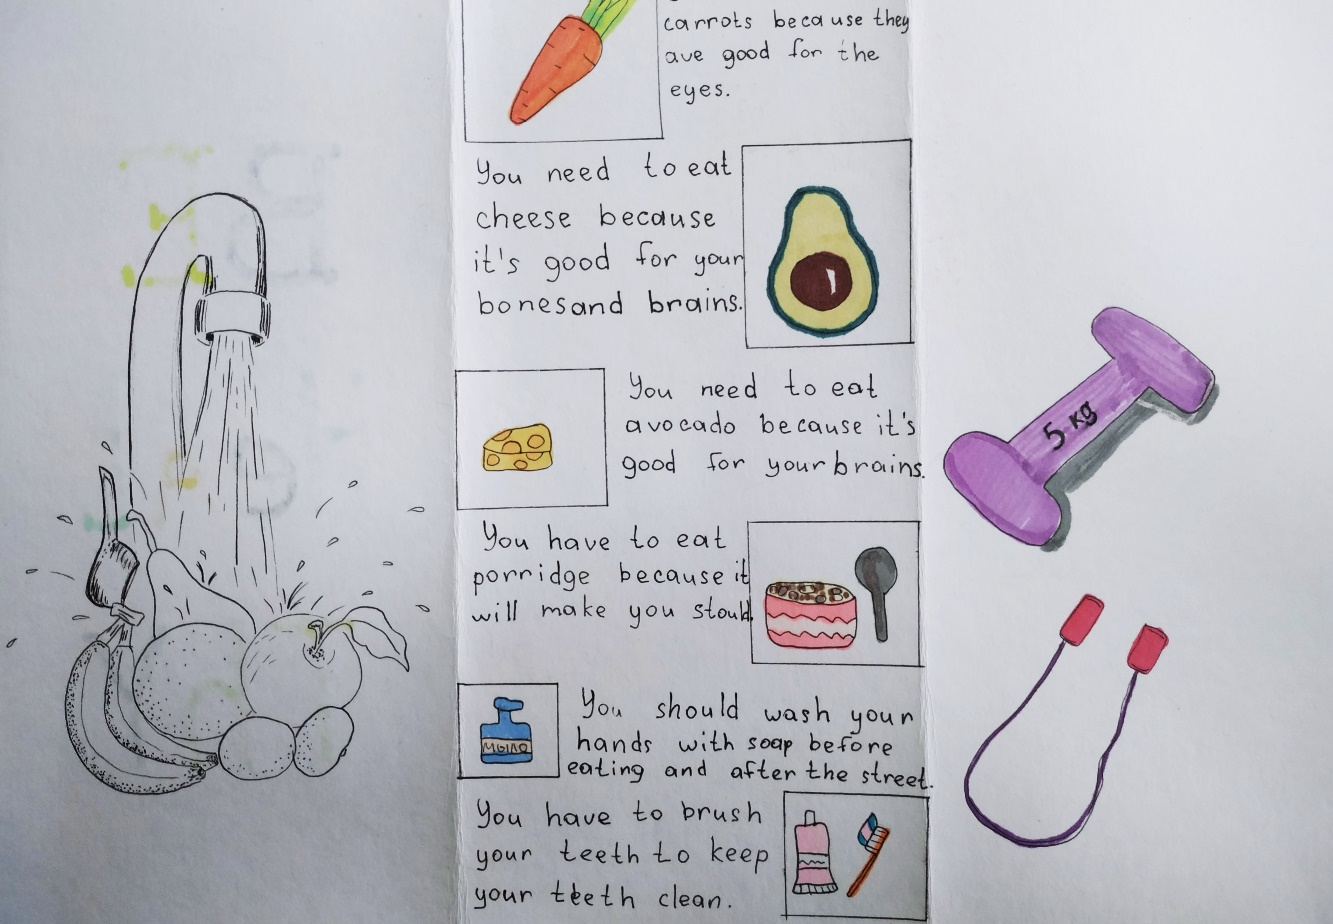 carrots because they
ave good for the
eyes.
You need to eat
cheese because
it's good for your
bonesand brains.
You need to eat
avocado because it's
good for your brains.
You have to eat
porridge because it
will make you stould.
мыло
You should wash your
hands with soap before
eating and after the street.
You have to brush
your teeth to keep
your teeth clean.
5 кg